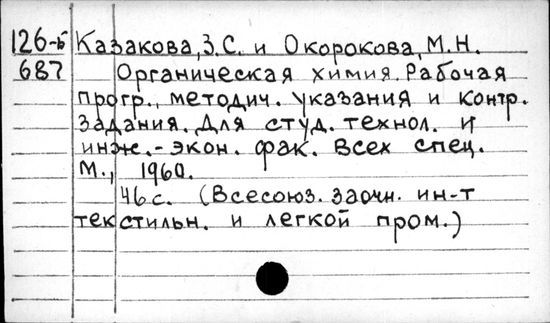 126-5 Казакова, З.С. и Окорокова, М.Н.
687 Органическая химия. Рабочая
прогр., методич. указания и контр.
задания. Для студ. технол. и
инж.-экон. фак. всех спец.
М., 1960.
46 с. (Всесоюз. заочн. ин-т
текстильн. и легкой пром.)